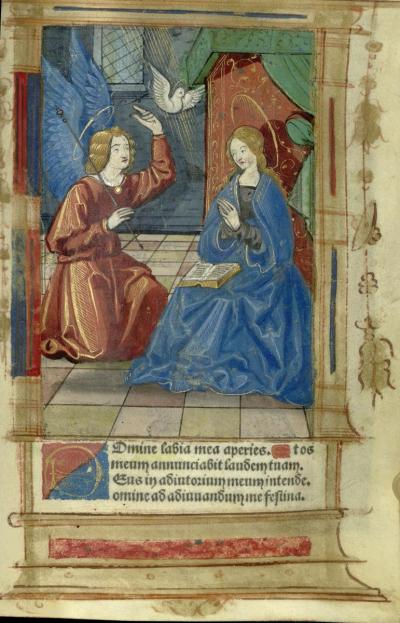 Domine labia mea aperies. Et os
meum annunciabit laudem tuam.
Deus in adiutorium meum intende.
omine ad adiuuandum me festina.